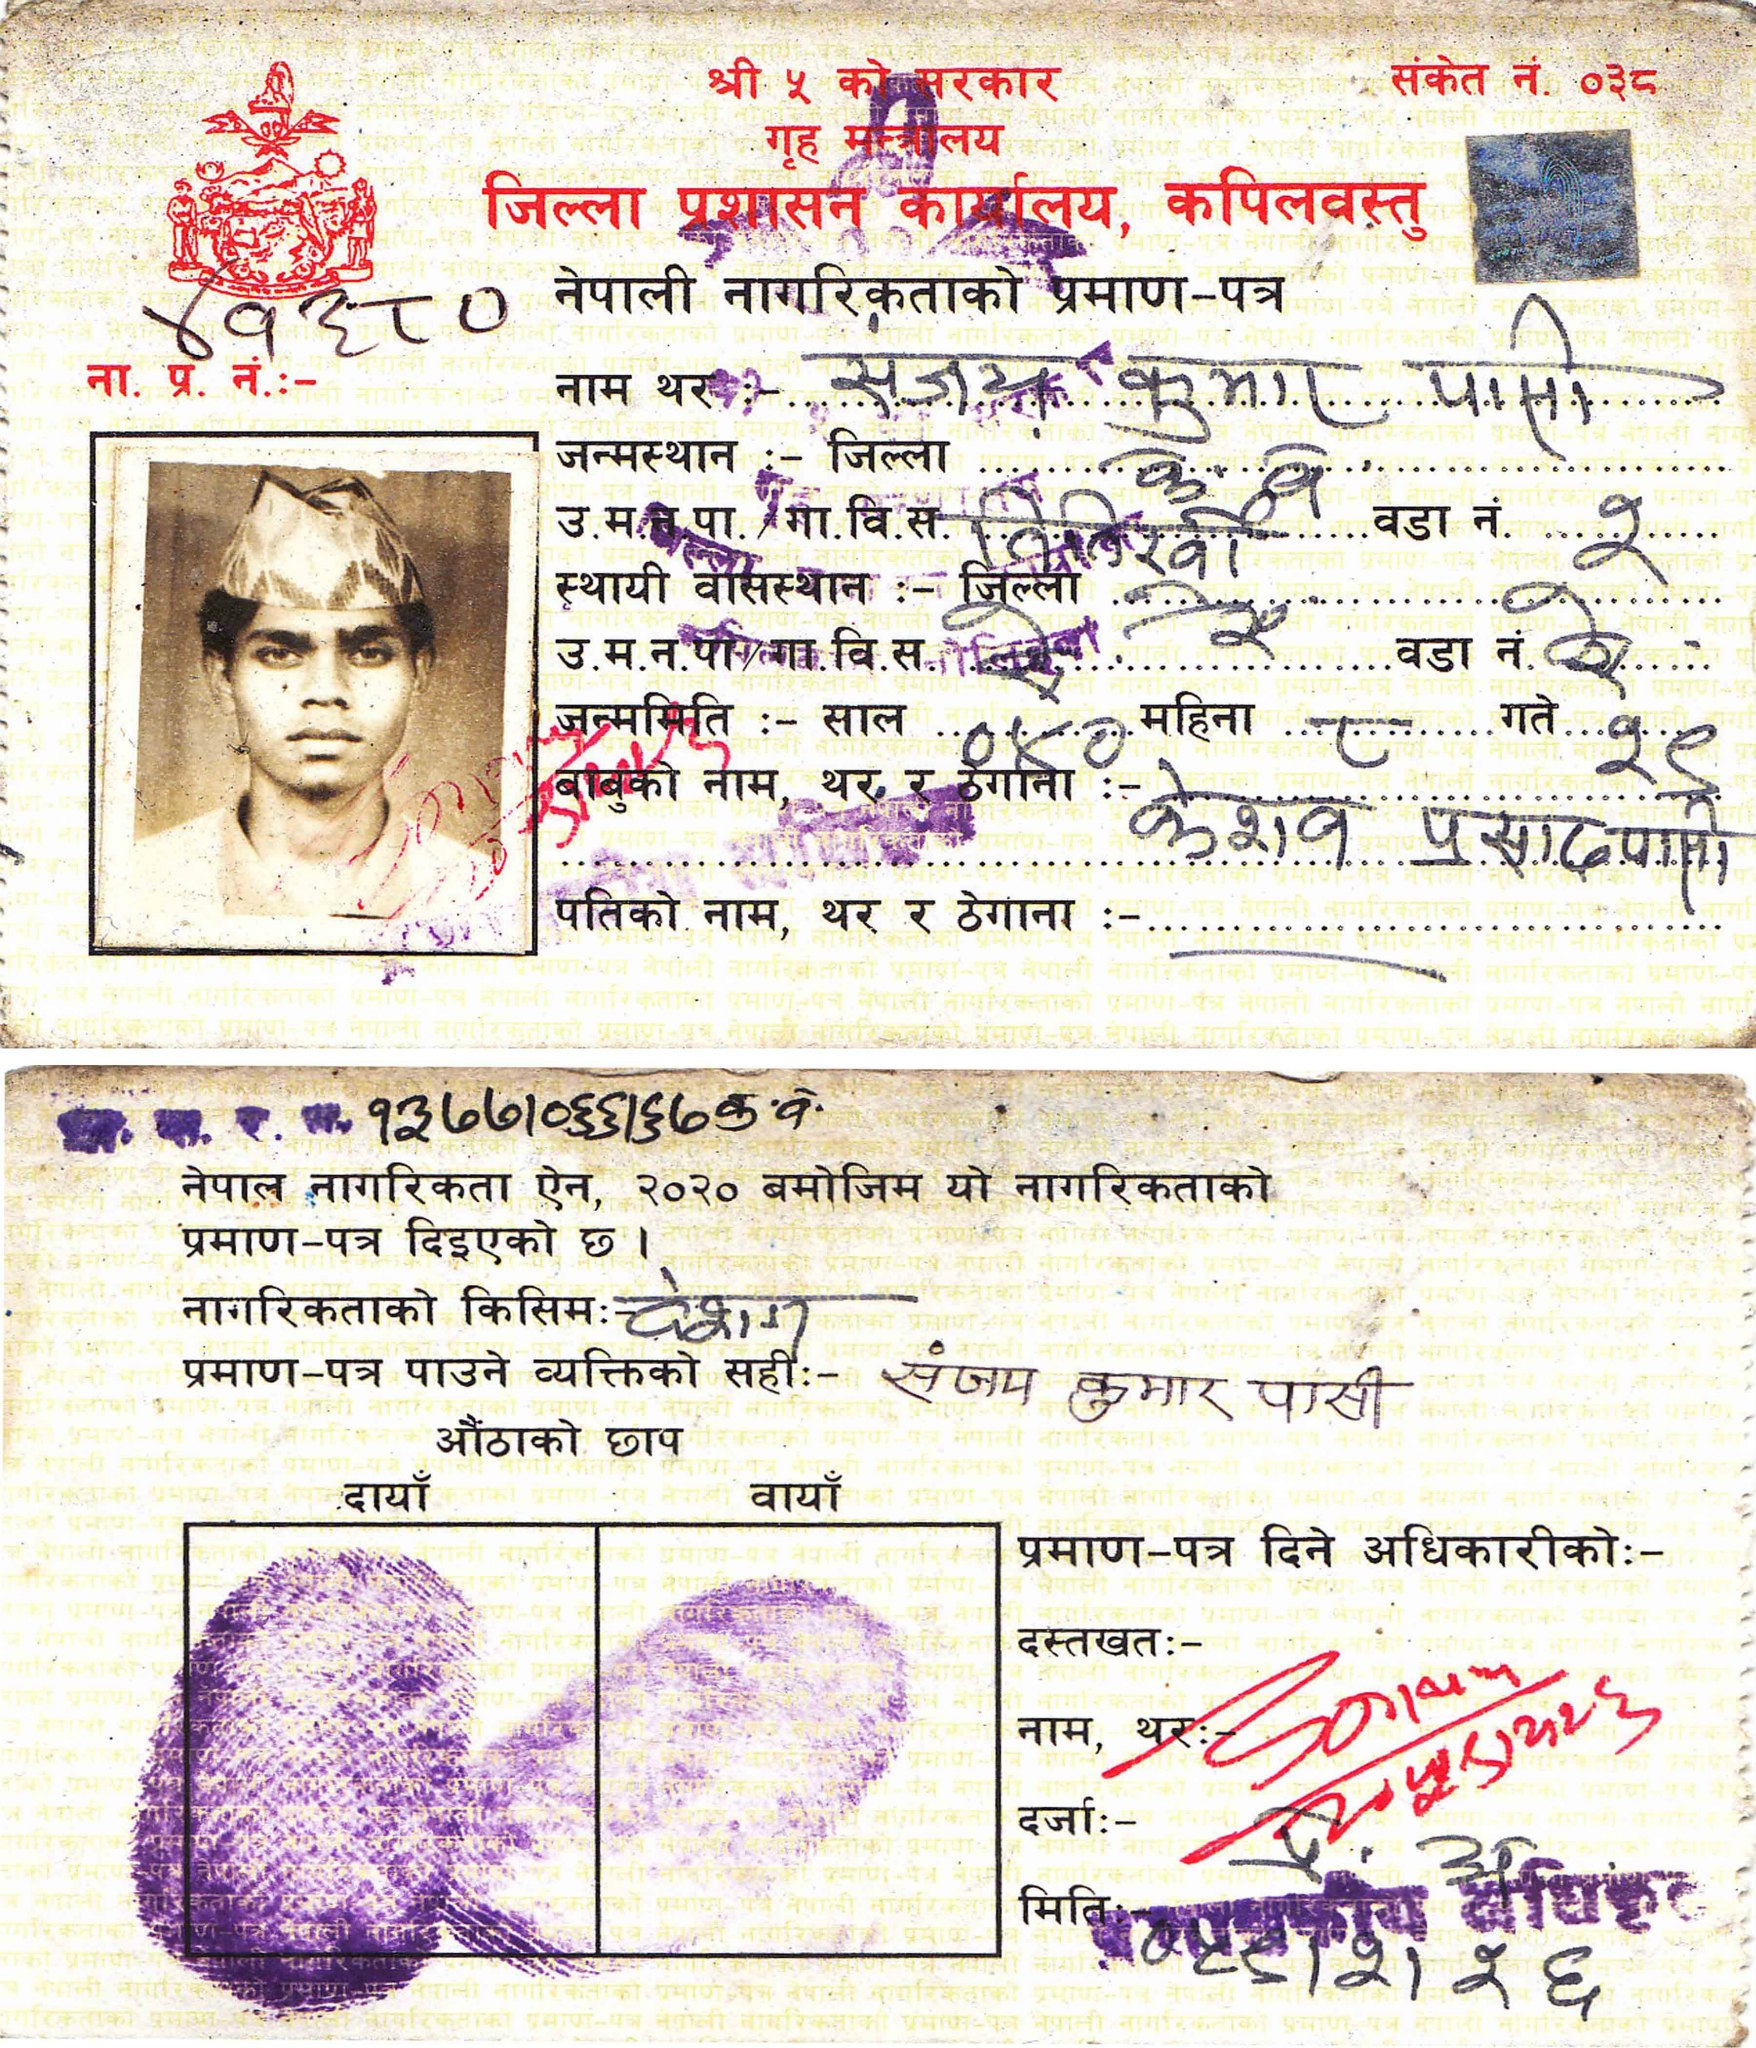 श्री ५ को सरकार
संकेत नं. ०३८
गृह मन्त्रालय
जिल्ला प्रशासन कार्यालय, कपिलवस्तु
नेपाली नागरिकताको प्रमाण-पत्र
४१३८०
ना. प्र. नं.:-
नाम थर :- संजय कुमार पासी
जन्मस्थान :- जिल्ला क. व.
उ.म.न.पा./गा.वि.स. वडा नं. २
स्थायी वासस्थान :- जिल्ला
उ.म.न.पा/गा.वि.स. वडा नं.
जन्ममिति :- साल ०४० महिना ८ गते २९
बाबुको नाम, थर र ठेगाना :-
केशव प्रसाद पासी
पतिको नाम, थर र ठेगाना :-
१३७७।०६६।६७ क.व.
नेपाल नागरिकता ऐन, २०२० बमोजिम यो नागरिकताको
प्रमाण-पत्र दिइएको छ ।
नागरिकताको किसिम:- वंशज
प्रमाण-पत्र पाउने व्यक्तिको सही:- संजय कुमार पासी
औंठाको छाप
दायाँ वायाँ
प्रमाण-पत्र दिने अधिकारीको:-
दस्तखत:-
नाम, थर:-
दर्जा:- प्र. अ
मिति:-